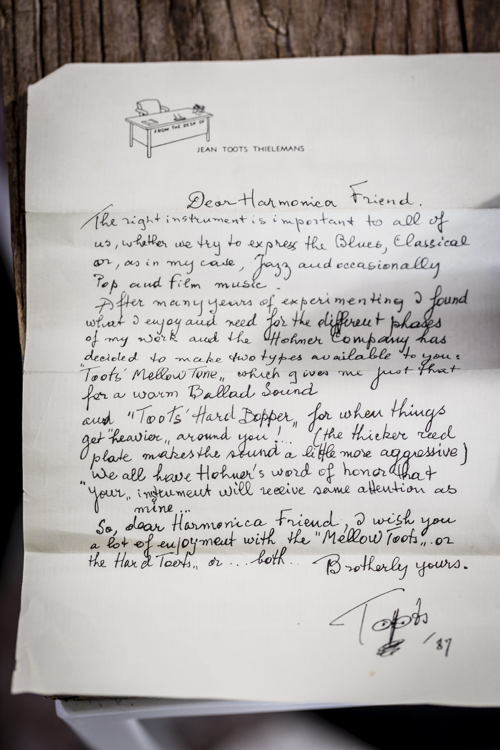 FROM THE DESK OF
JEAN TOOTS THIELEMANS
Dear Harmonica Friend.
The right instrument is important to all of
us, whether we try to express the Blues, Classical
or, as in my case, Jazz and occasionally
Pop and Film music.
After many years of experimenting I found
what I enjoy and need for the different phases
of my work and the Hohner Company has
decided to make two types available to you:
"Toots' Mellow Tone" which gives me just that
for a warm Ballad Sound
and "Toots' Hard Bopper" for when things
get "heavier" around you!... (the thicker reed
plate makes the sound a little more aggressive)
We all have Hohner's word of honor that
"your" instrument will receive same attention as
mine...
So, dear Harmonica Friend, I wish you
a lot of enjoyment with the "Mellow Toots" or
the Hard Toots" or ... both. Brotherly yours.
Toots
'87